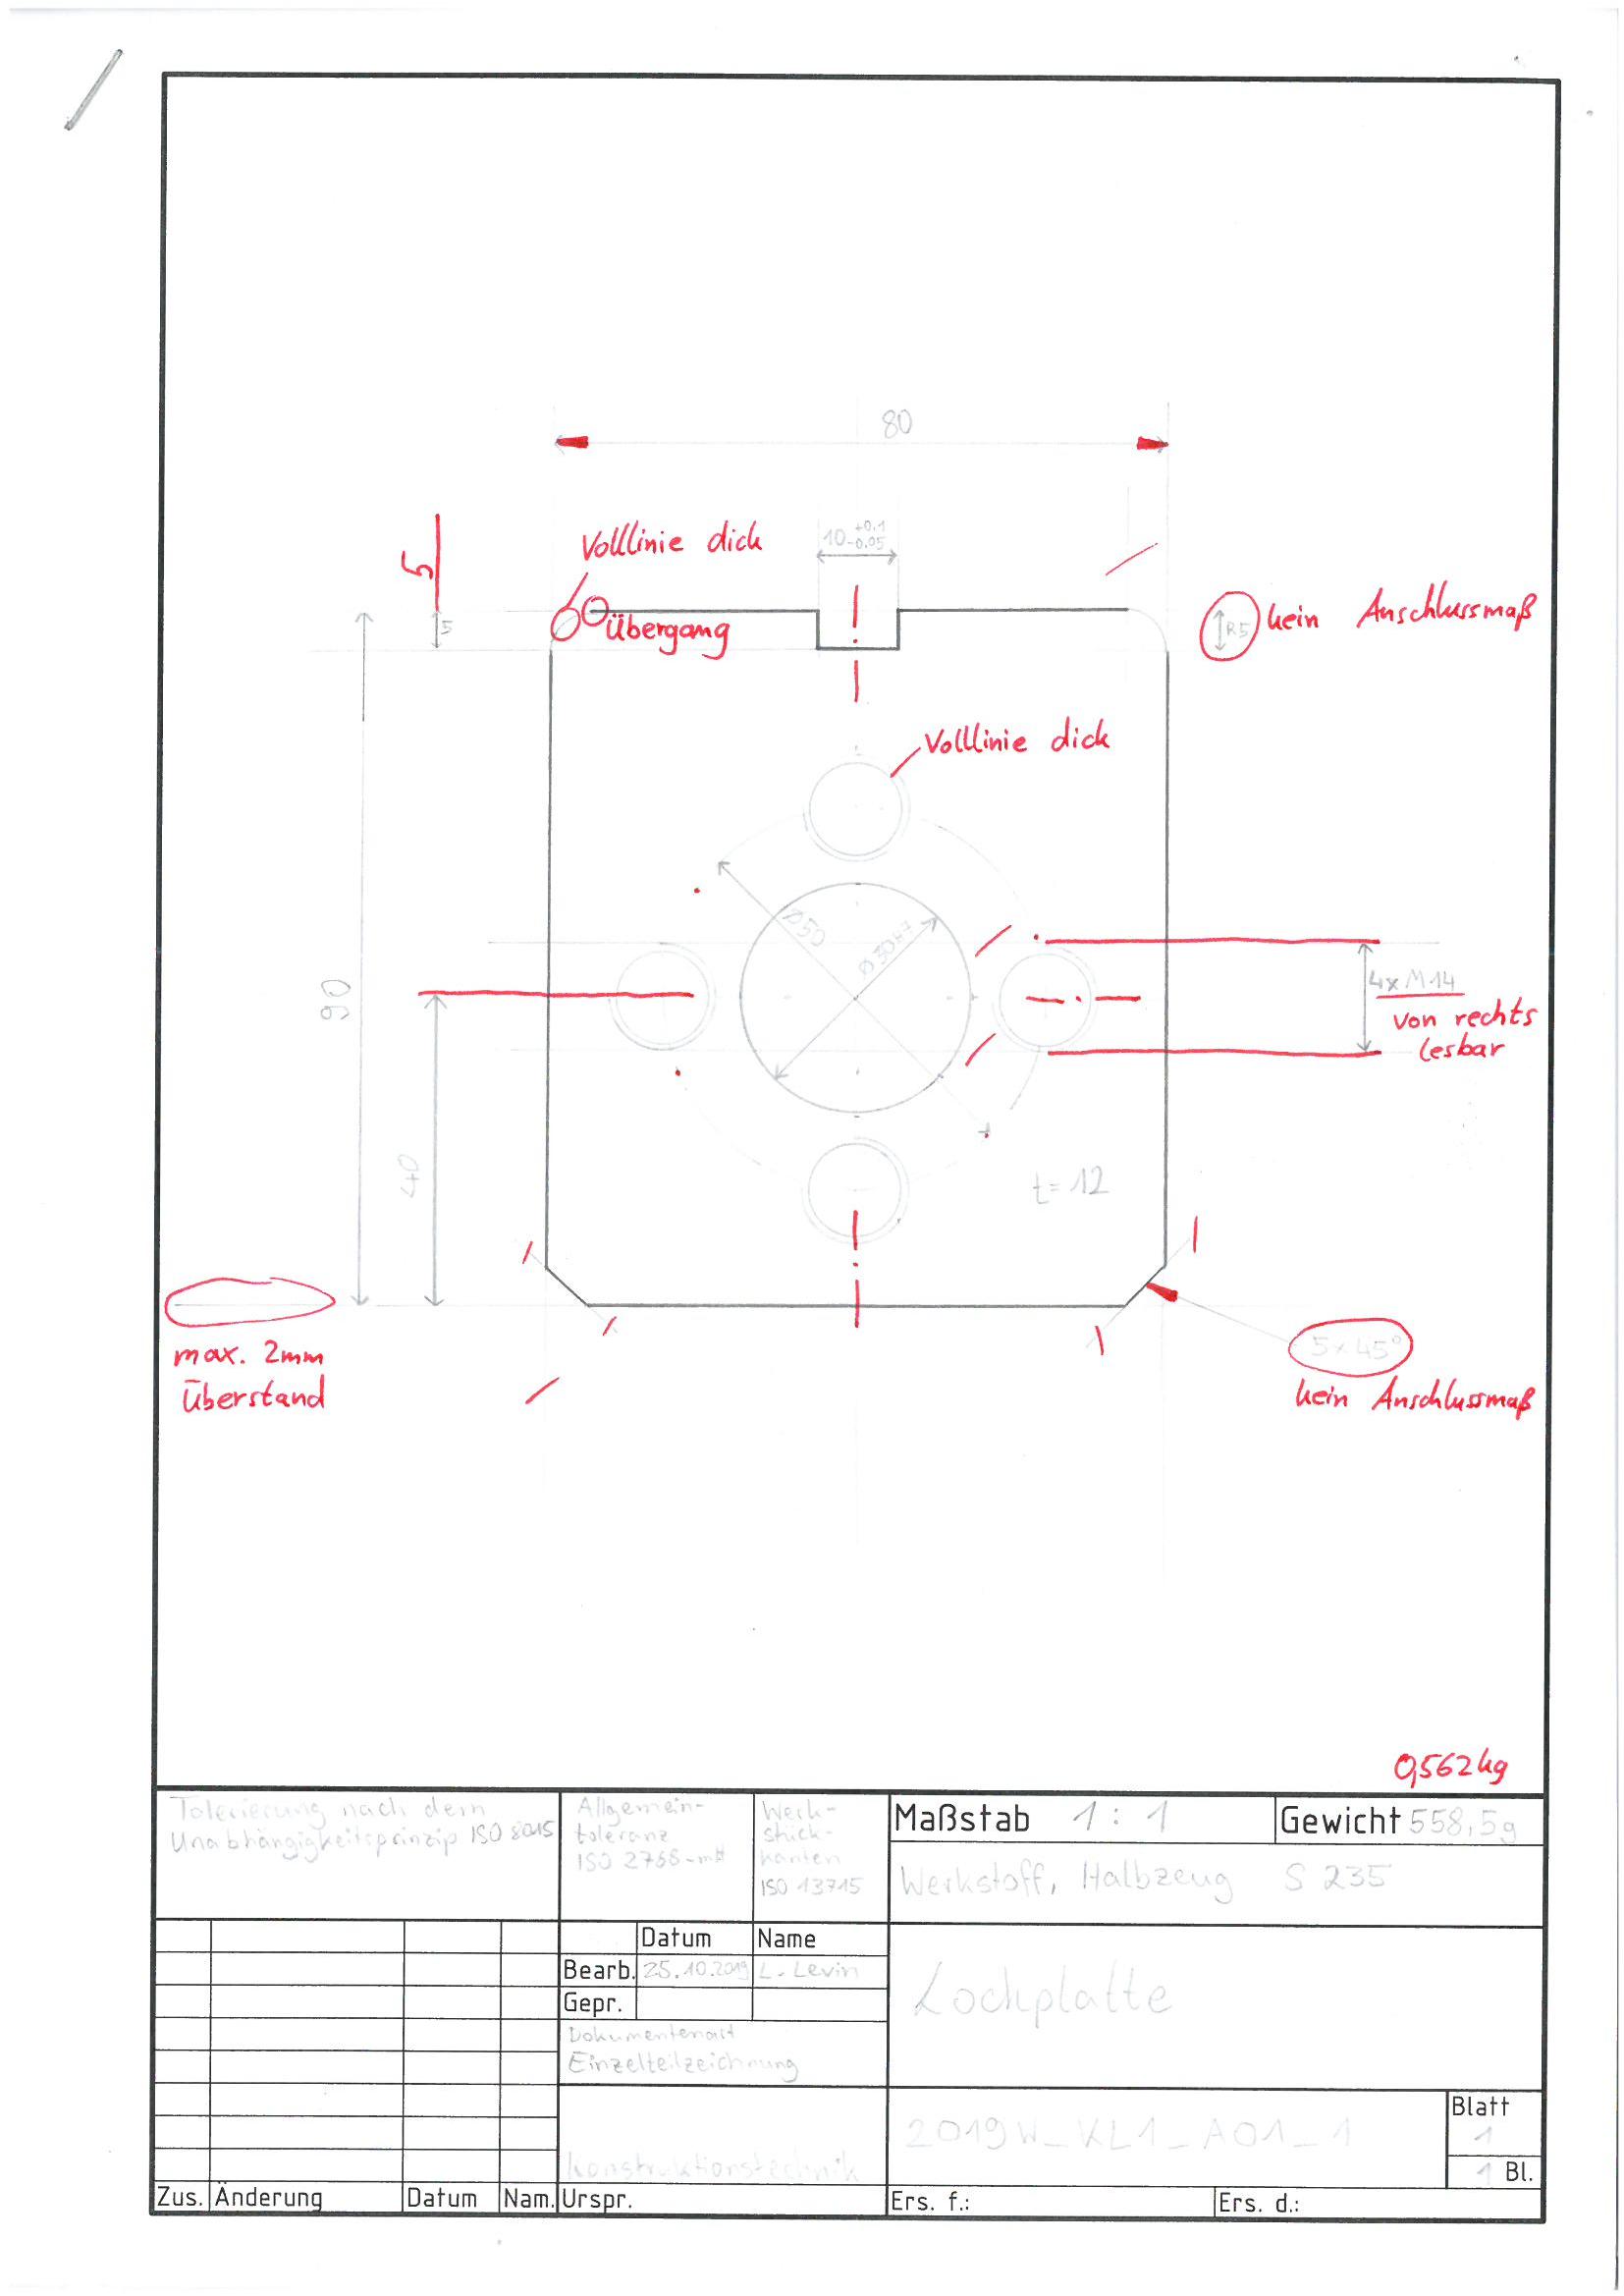 80
Volllinie dick
10 +0.1 -0.05
5
5
Übergang
R5
kein Anschlussmaß
Volllinie dick
Ø50
Ø30H7
4xM14
von rechts
lesbar
90
40
t=12
max. 2mm
Überstand
5x45°
kein Anschlussmaß
0,562kg
Tolerierung nach dem
Unabhängigkeitsprinzip ISO 8015
Allgemein-
toleranz
ISO 2768-mH
Werk-
stück-
kanten
ISO 13715
Maßstab 1:1
Gewicht 558,5g
Werkstoff, Halbzeug S 235
Datum Name
Bearb. 25.10.2019 L. Levin
Gepr.
Lochplatte
Dokumentenart
Einzelteilzeichnung
Konstruktionstechnik
2019W_KL1_A01_1
Blatt
1
1 Bl.
Zus. Änderung Datum Nam. Urspr. Ers. f.: Ers. d.: